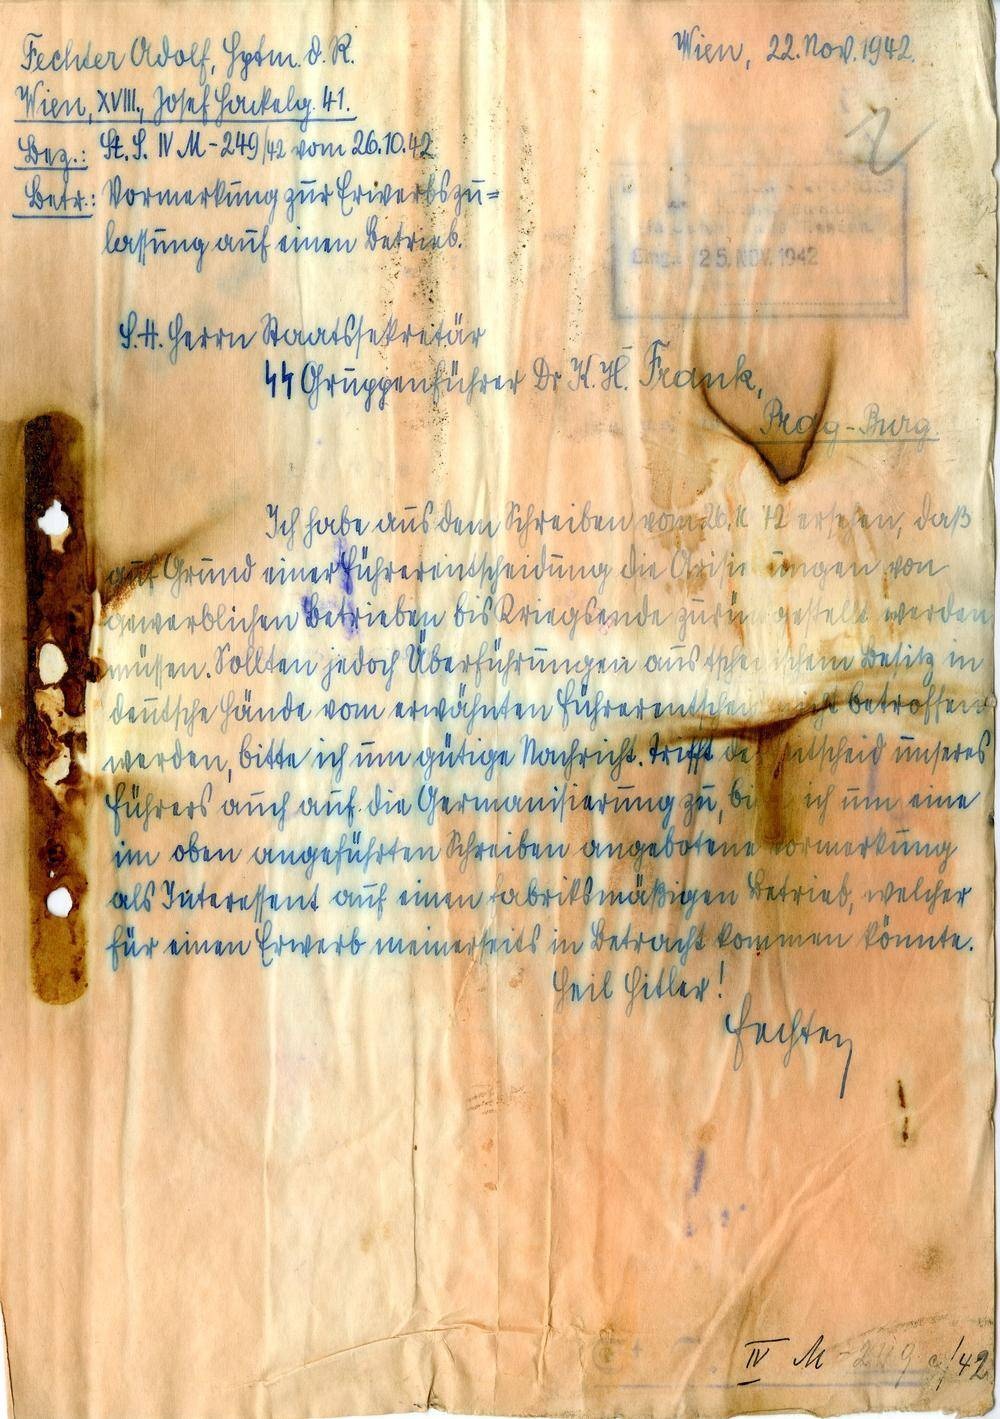 Fechter Adolf, Hptm. d. R.
Wien, 22. Nov. 1942.
Wien, XVIII., Josef Hackelg. 41.
Bez.: St. S. IV M - 249/42 vom 26.10.42
Betr.: Vormerkung zur Erwerbszu=
lassung auf einen Betrieb.
Eing.: 25. NOV. 1942
S.H. Herrn Staatssekretär
SS Gruppenführer Dr K. H. Frank,
Prag-Burg.
Ich habe aus dem Schreiben vom 26. 42 ersehen, daß
auf Grund einer Führerentscheidung die von
gewerblichen Betrieben bis Kriegsende werden
müssen. Sollten jedoch Überführungen aus Besitz in
deutsche Hände vom erwähnten betroffen
werden, bitte ich um gütige Nachricht. Trifft unseres
Führers auch auf die Germanisierung zu, ich um eine
im oben angeführten Schreiben angebotene Vormerkung
als Interessent auf einen fabriksmäßigen Betrieb, welcher
für einen Erwerb meinerseits in Betracht kommen könnte.
Heil Hitler!
Fechter
IV M - 249 /42